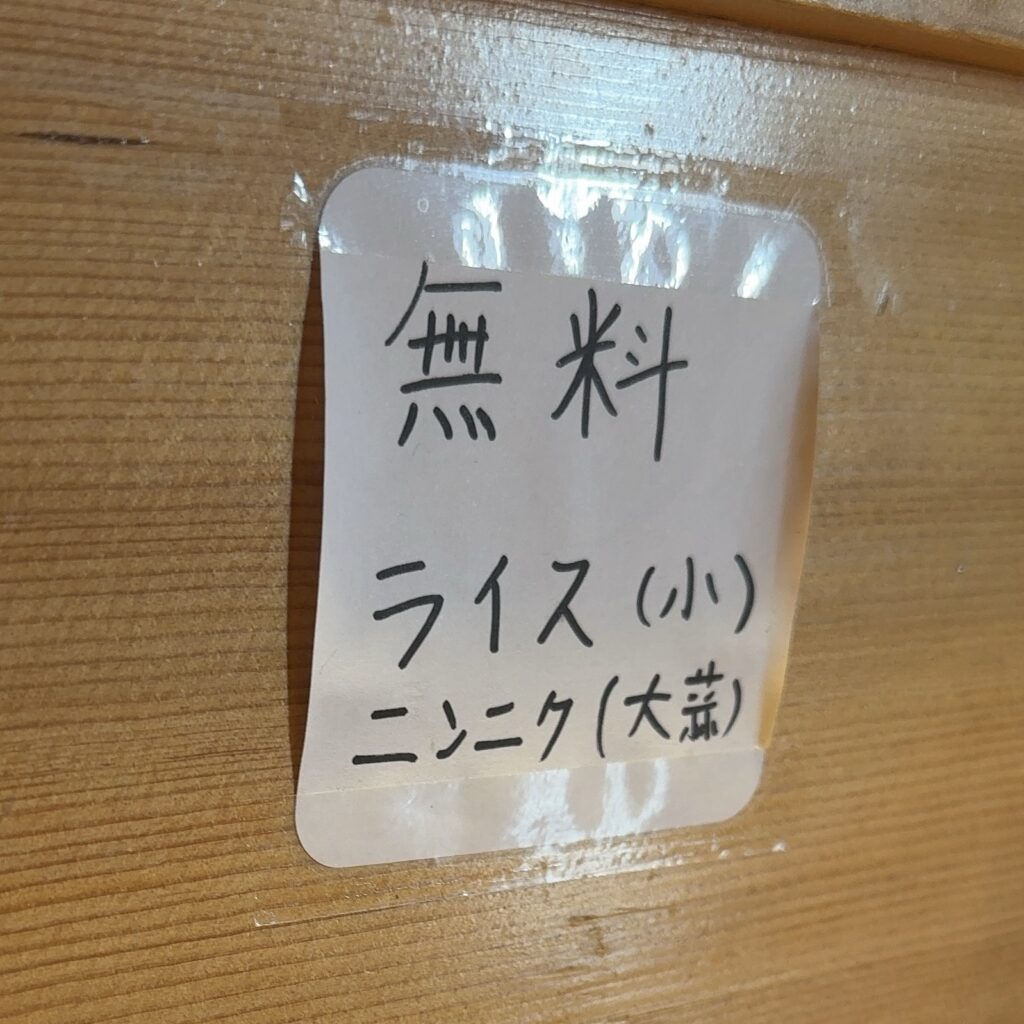 無料
ライス(小)
ニンニク(大蒜)